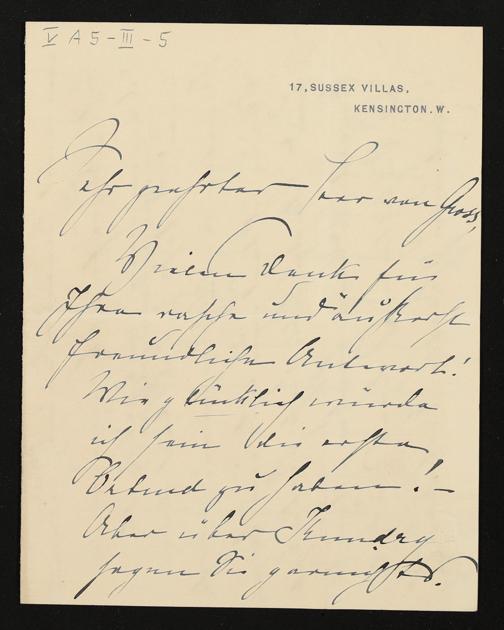 V A 5 - III - 5
17, SUSSEX VILLAS,
KENSINGTON. W.
Sehr geehrter Herr von Gross,
Vielen Dank für
Ihre rasche und äußerst
freundliche Antwort!
Wie glücklich würde
ich sein die erste
zu haben! –
Aber über Kundry
sagen Sie gar nichts.